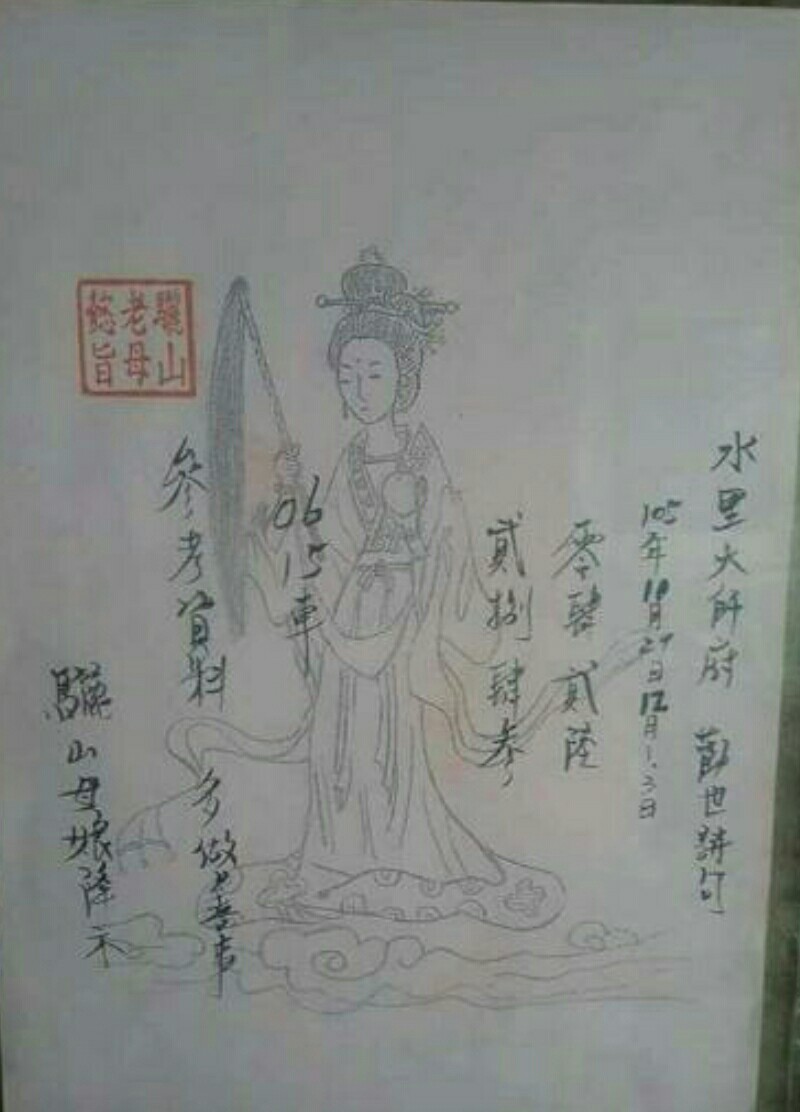 水里大師府 勸世詩句
105年10月29日12月1、3日
零肆 貳陸
貳捌 肆參
06
15車
參考資料
多做善事
驪山母娘降示
驪山
老母
懿旨